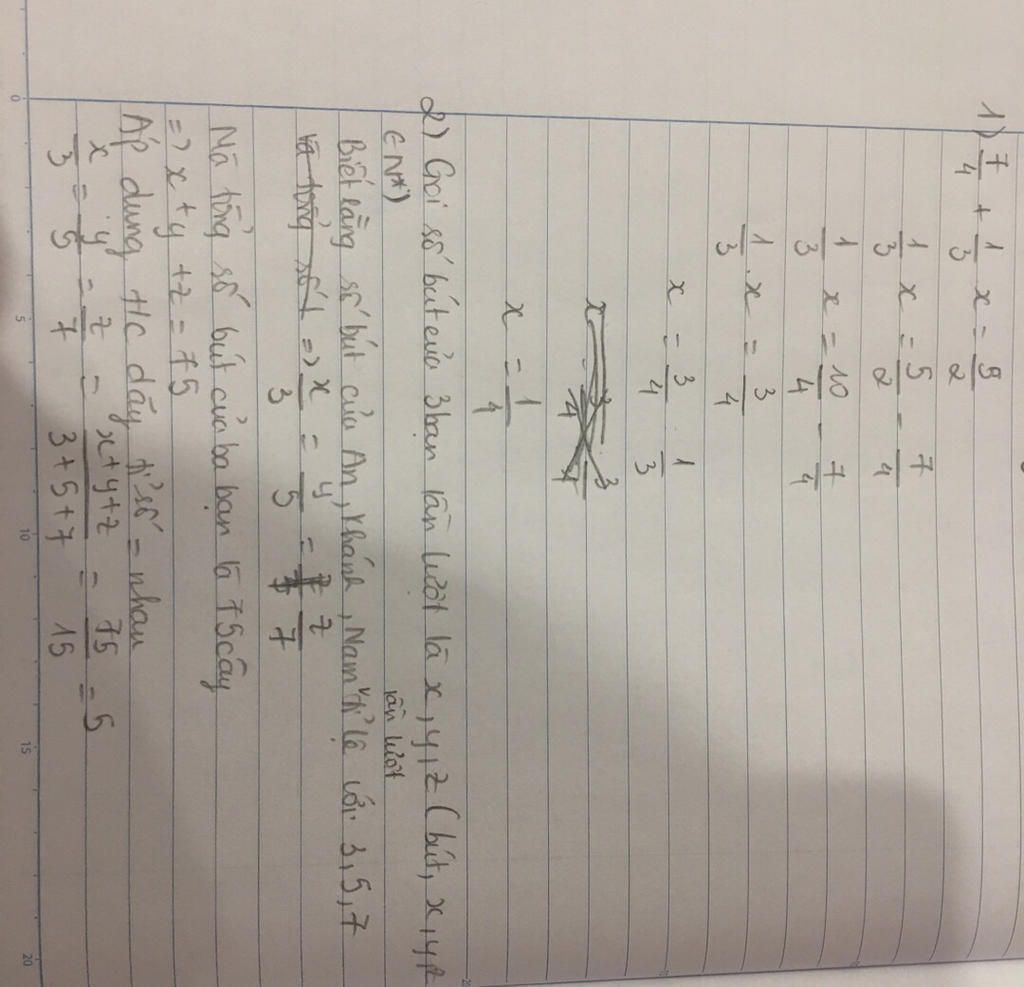 1) 7/4 + 1/3 x = 5/2
1/3 x = 5/2 - 7/4
1/3 x = 10/4 - 7/4
1/3 . x = 3/4
x = 3/4 1/3
x = 1/4
2) Gọi số bút của 3 bạn lần lượt là x, y, z (bút, x, y, z
∈ N*)
lần lượt
Biết rằng số bút của An, Khánh, Nam tỉ lệ với 3, 5, 7
và tổng số => x/3 = y/5 = z/7
Mà tổng số bút của ba bạn là 75 cây
=> x + y + z = 75
Áp dụng t/c dãy tỉ số = nhau
x/3 = y/5 = z/7 = x+y+z/3+5+7 = 75/15 = 5
0 5 10 15 20